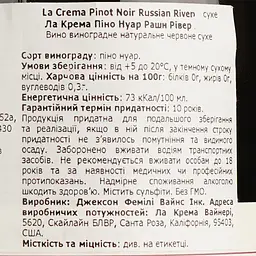 La Crema Pinot Noir Russian Riven сухе
Ла Крема Піно Нуар Рашн Рівер
Вино виноградне натуральне червоне сухе
Сорт винограду: піно нуар.
Умови зберігання: від +5 до 20°С, у темному сухому
місці. Харчова цінність на 100г: білків 0г, жирів 0г,
вуглеводів 0,3г.
Енергетична цінність: 73 кКал/100 мл.
Гарантійний термін придатності: 10 років.
52а, Продукція придатна для подальшого зберігання
430 та реалізації, якщо в ній після закінчення строку
придатності не з'явилось помутніння та видимого
осаду. Заборонено вживати водіям транспортних
засобів. Не рекомендується вживати особам до 18
років та за наявності медичних чи професійних
протипоказань. Надмірне споживання алкоголю
шкодить здоров'ю. Містить сульфіти. Без ГМО.
Виробник: Джексон Фемілі Вайнс Інк. Адреса
виробничих потужностей: Ла Крема Вайнері,
5620, Скайлайн БЛВР, Санта Роза, Каліфорния, 95403,
США.
Місткість та міцність: див. на етикетці.